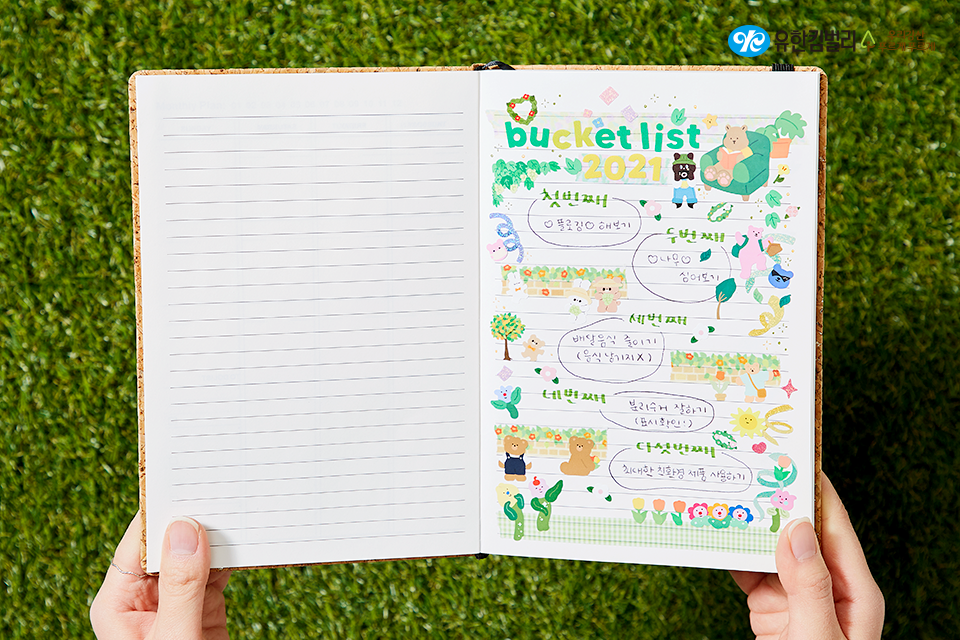 유한킴벌리
bucket list
2021
첫번째
♡플로깅♡ 해보기
두번째
♡나무♡
심어보기
세번째
배달음식 줄이기
(음식 남기지X)
네번째
분리수거 잘하기
(표시확인!)
다섯번째
최대한 친환경 제품 사용하기